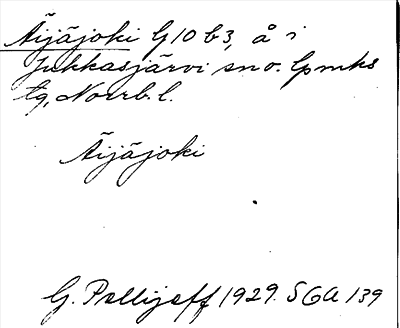 Äijäjoki G10 b3, å i
Jukkasjärvi sn o. Lpmks
tg, Norrb. l.
Äijäjoki
G. Pellijeff 1929. SGA 139